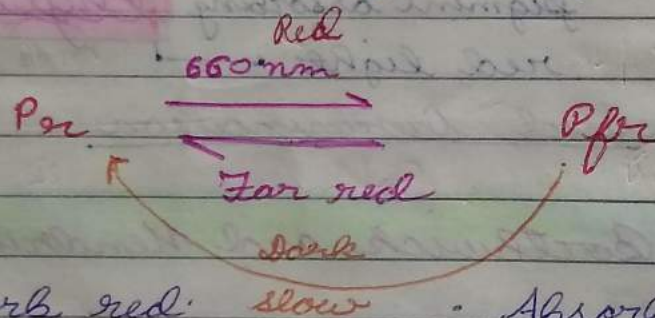 Red
660 nm
Pr Pfr
Far red
Dark
rb red. slow . Absorb